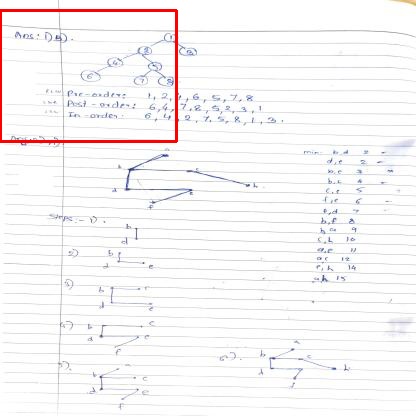 Ans: 1) B).
1
2
3
4
5
6
7
8
Pre-order: 1, 2, 4, 6, 5, 7, 8
Post-order: 6, 4, 7, 8, 5, 2, 3, 1
In-order: 6, 4, 2, 7, 5, 8, 1, 3.
min- b,d 2 -
d,e 2 -
b,c 3
b,c 4
c,e 5
f,e 6 -
f,d 7
b,f 8
b,a 9
c,h 10
a,e 11
a,c 12
e,h 14
a,h 15
b
c
h
d
f
Steps:- 1).
b
d
2)
b
d
e
3)
b
d
e
4)
b
c
d
f
5).
b
c
d
e
f
6).
b
c
h
d